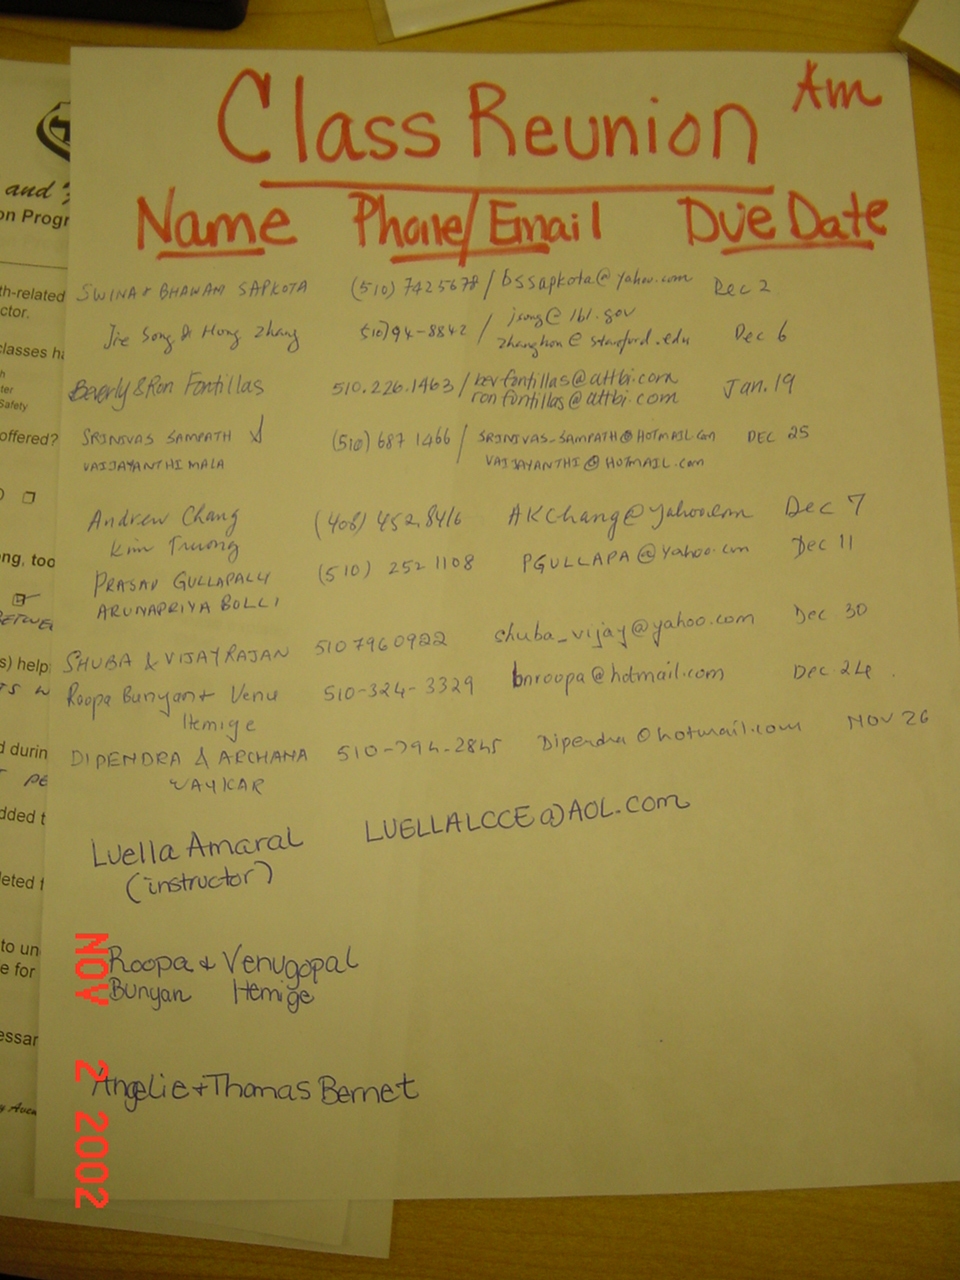 Class Reunion Am
Name Phone/Email Due Date
SWINA & BHAWANI SAPKOTA (510) 7425678 / bssapkota@yahoo.com Dec 2
Jie Song & Hong Zhang 510)94-8842 / jsong@lbl.gov Dec 6
zhanghon@stanford.edu
Beverly & Ron Fontillas 510.226.1463 / bevfontillas@attbi.com Jan. 19
ronfontillas@attbi.com
SRINIVAS SAMPATH & (510) 687 1466 / SRINIVAS_SAMPATH@HOTMAIL.COM DEC 25
VAIJAYANTHIMALA VAIJAYANTHI@HOTMAIL.com
Andrew Chang (408) 452.8416 AKChang@yahoo.com Dec 7
Kim Truong
PRASAD GULLAPALLI (510) 252 1108 PGULLAPA@Yahoo.com Dec 11
ARUNAPRIYA BOLLI
SHUBA & VIJAY RAJAN 510 7960922 shuba_vijay@yahoo.com Dec 30
Roopa Bunyan + Venu 510-324-3329 bnroopa@hotmail.com Dec 24
Hemige
DIPENDRA & ARCHANA 510-794-2845 Dipendra@hotmail.com NOV 26
VAYKAR
Luella Amaral LUELLALCCE@AOL.com
(instructor)
Roopa & Venugopal
Bunyan Hemige
Angelie + Thomas Bernet
NOV 2 2002
and
on Progr
th-related
ctor.
classes h
ter
Safety
offered?
ng, too
BETWE
s) help
d durin
PE
dded t
leted f
to un
e for
essar